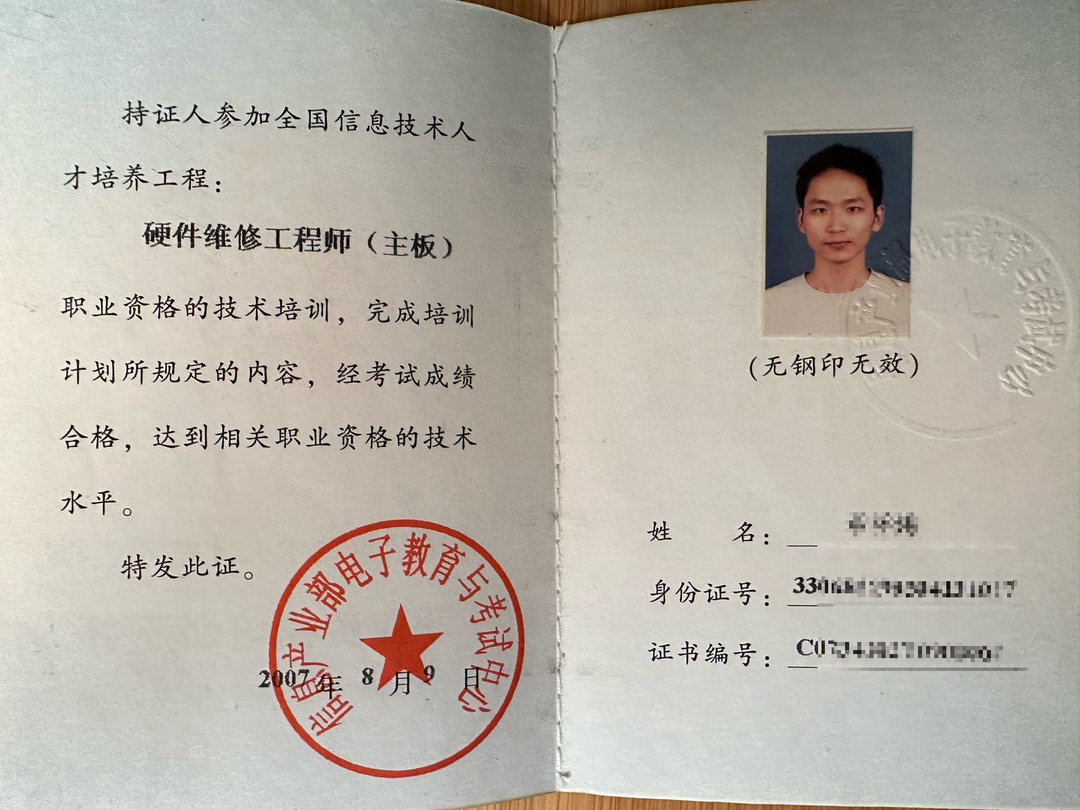 持证人参加全国信息技术人
才培养工程:
硬件维修工程师(主板)
职业资格的技术培训,完成培训
计划所规定的内容,经考试成绩
合格,达到相关职业资格的技术
水平。
特发此证。
信息产业部电子教育与考试中心
2007年 8月 9日
(无钢印无效)
姓 名:
身份证号:
证书编号: